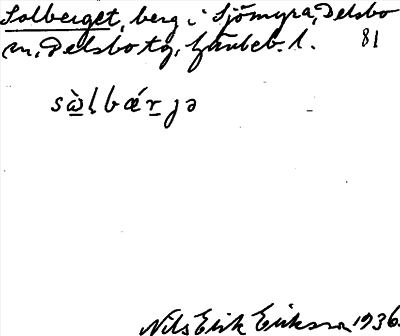 Solberget, berg i Sjömyra, Delsbo
sn, Delsbo tg, Gävleb. l. 81
sὼlbǽrjə
Nils Erik Eriksson 1936.